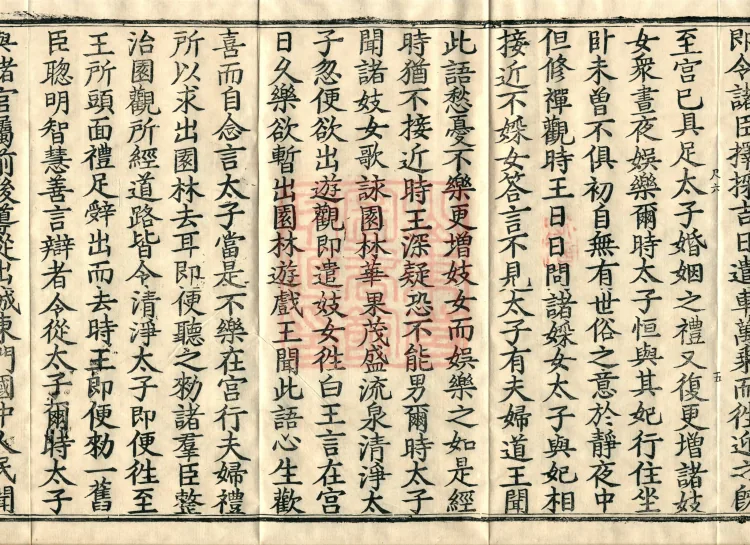 即令諸臣擇採吉日遣車萬乘而往迎之既
至宮已具足太子婚姻之禮又復更增諸妓
女衆晝夜娛樂爾時太子恒與其妃行住坐
卧未曾不俱初自無有世俗之意於靜夜中
但修禪觀時王日日問諸婇女太子與妃相
接近不婇女答言不見太子有夫婦道王聞
此語愁憂不樂更增妓女而娛樂之如是經
時猶不接近時王深疑恐不能男爾時太子
聞諸妓女歌詠園林華果茂盛流泉清淨太
子忽便欲出遊觀即遣妓女徃白王言在宮
日久樂欲暫出園林遊戲王聞此語心生歡
喜而自念言太子當是不樂在宮行夫婦禮
所以求出園林去耳即便聽之勑諸羣臣整
治園觀所經道路皆令清淨太子即便徃至
王所頭面禮足辭出而去時王即便勑一舊
臣聰明智慧善言辯者令從太子爾時太子
與諸官屬前後導從出城東門國中人民聞
尺六
五